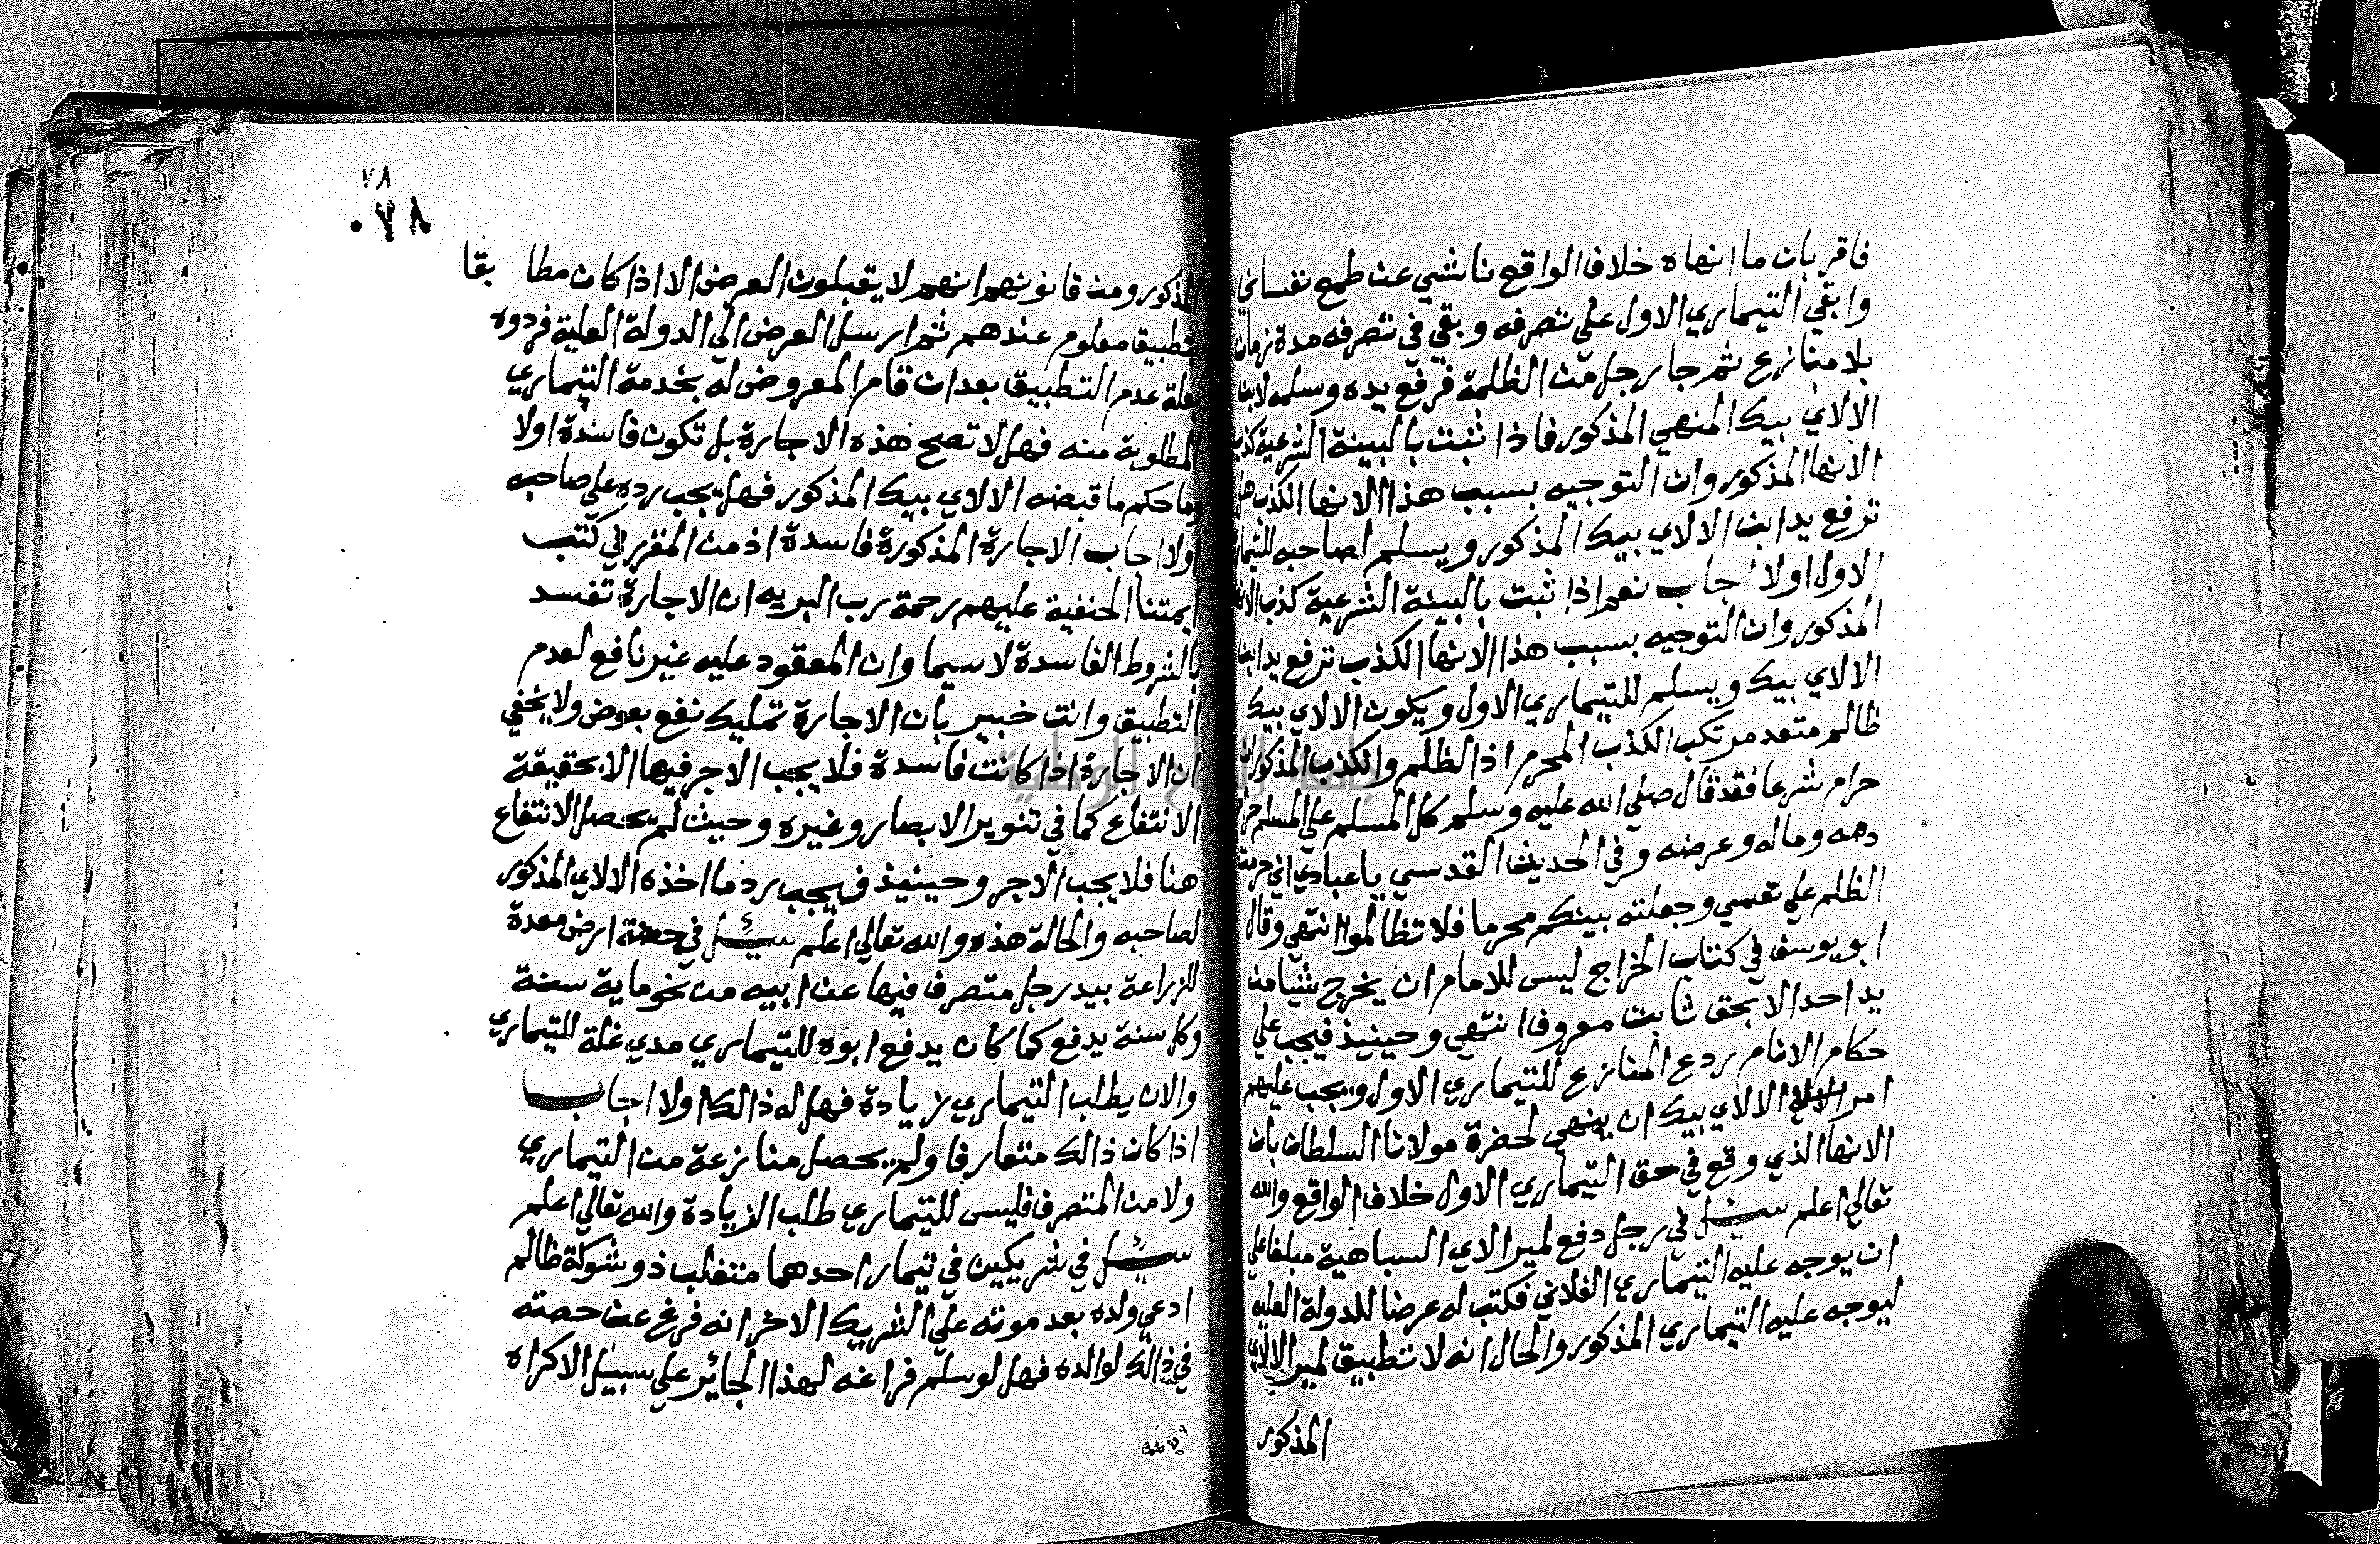 فاقر بان ما انهاه خلاف الواقع ناشي عن طمع نفساني
وابقي التيماري الاول علي تصرفه وبقي في تصرفه مدة زمان
بلا منازع ثم جا رجل من الظلمة فرفع يده وسلمه لابن
الالاي بيك المنهي المذكور فاذا ثبت بالبينة الشرعية كذب
الانها المذكور وان التوجيه بسبب هذا الانها الكذب هل
ترفع يد ابن الالاي بيك المذكور ويسلم لصاحبه التيماري
الاول اولا اجاب نعم اذا ثبت بالبينة الشرعية كذب الانها
المذكور وان التوجيه بسبب هذا الانها الكذب ترفع يد ابن
الالاي بيك ويسلم للتيماري الاول ويكون الالاي بيك
ظالم متعد مرتكب الكذب المحرم اذ الظلم والكذب المذكوران
حرام شرعا فقد قال صلي الله عليه وسلم كل المسلم علي المسلم حرام
دمه وماله وعرضه وفي الحديث القدسي يا عبادي اني حرمت
الظلم علي نفسي وجعلته بينكم محرما فلا تظالموا انتهي وقال
ابو يوسف في كتاب الخراج ليس للامام ان يخرج شيا من
يد احد الا بحق ثابت معروف انتهي وحينيذ فيجب علي
حكام الانام ردع المنازع للتيماري الاول ويجب عليهم
امر الالاي بيك ان ينهي لحضرة مولانا السلطان بان
الانها الذي وقع في حق التيماري الاول خلاف الواقع والله
تعالي اعلم سئل في رجل دفع لمير الاي السباهية مبلغا علي
ان يوجه عليه التيماري الفلاني فكتب له عرضا للدولة العليه
ليوجه عليه التيماري المذكور والحال انه لا تطبيق لمير الالاي
المذكور
٧٨
٠٧٨
المذكور ومن قانونهم انهم لا يقبلون العرض الا اذا كان مطا بقا
بتطبيق معلوم عندهم ثم ارسل العرض الي الدولة العلية فردوه
بعلة عدم التطبيق بعد ان قام المعروض له بخدمة التيماري
المطلوبة منه فهل لا تصح هذه الاجارة بل تكون فاسدة اولا
وما حكم ما قبضه الالاي بيك المذكور فهل يجب رده علي صاحبه
اولا اجاب الاجارة المذكورة فاسدة اذ من المقرر في كتب
ايمتنا الحنفية عليهم رحمة رب البريه ان الاجارة تفسد
بالشروط الفاسدة لا سيما وان المعقود عليه غير نافع لعدم
التطبيق وانت خبير بان الاجارة تمليك نفع بعوض ولا يخفي
ان الاجارة اذا كانت فاسدة فلا يجب الاجر فيها الا بحقيقة
الانتفاع كما في تنوير الابصار وغيره وحيث لم يحصل الانتفاع
هنا فلا يجب الاجر وحينيذ فيجب رد ما اخذه الالاي المذكور
لصاحبه والحالة هذه والله تعالي اعلم سئل في حصة ارض معدة
للزراعة بيد رجل متصرف فيها عن ابيه من نحو ماية سنة
وكل سنة يدفع كما كان يدفع ابوه للتيماري مدي غلة للتيماري
والان يطلب التيماري زيادة فهل له ذالك اولا اجاب
اذا كان ذالك متعارفا ولم يحصل منازعة من التيماري
ولا من المتصرف فليس للتيماري طلب الزيادة والله تعالي اعلم
سئل في شريكين في تيمار احدهما متغلب ذو شوكة ظالم
ادعي ولده بعد موته علي الشريك الاخر انه فرغ عن حصته
في ذالك لوالده فهل لو سلم فراغه لهذا الجائر علي سبيل الاكراه